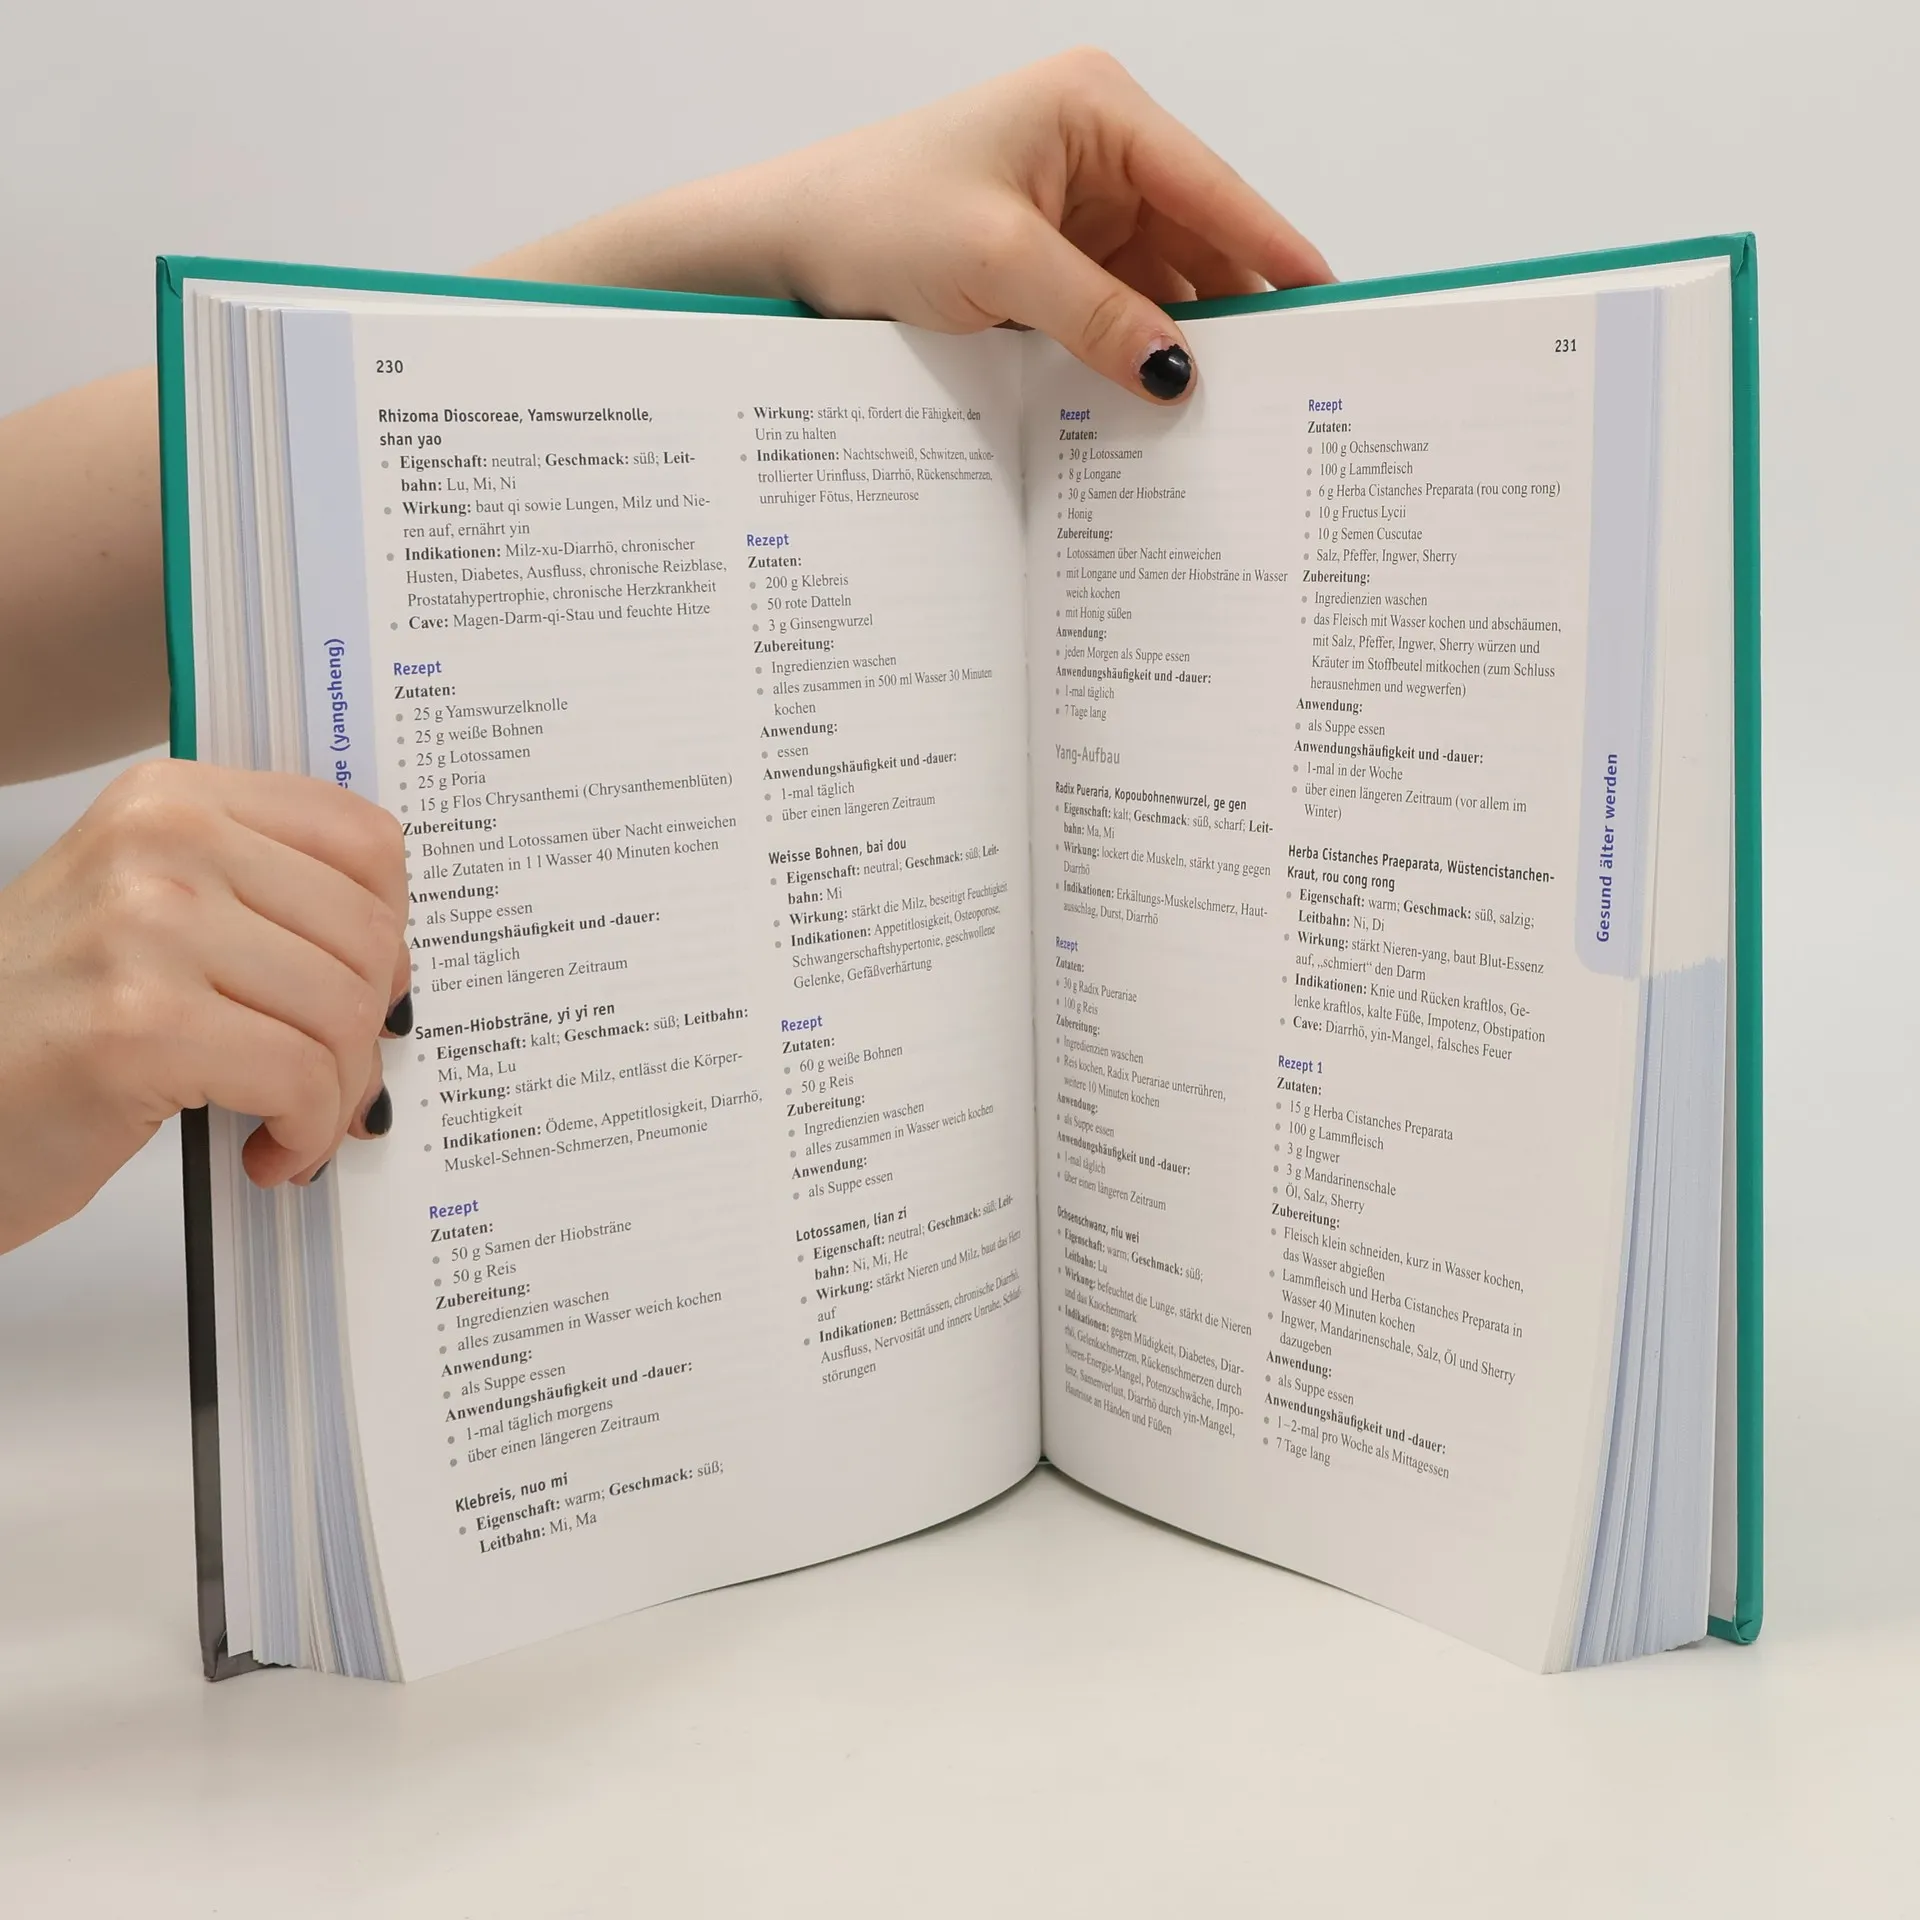 230
Rhizoma Dioscoreae, Yamswurzelknolle,
shan yao
• Eigenschaft: neutral; Geschmack: süß; Leit-
bahn: Lu, Mi, Ni
• Wirkung: baut qi sowie Lungen, Milz und Nie-
ren auf, ernährt yin
• Indikationen: Milz-xu-Diarrhö, chronischer
Husten, Diabetes, Ausfluss, chronische Reizblase,
Prostatahypertrophie, chronische Herzkrankheit
• Cave: Magen-Darm-qi-Stau und feuchte Hitze
Rezept
Zutaten:
• 25 g Yamswurzelknolle
• 25 g weiße Bohnen
• 25 g Lotossamen
• 25 g Poria
• 15 g Flos Chrysanthemi (Chrysanthemenblüten)
Zubereitung:
• Bohnen und Lotossamen über Nacht einweichen
• alle Zutaten in 1 l Wasser 40 Minuten kochen
Anwendung:
• als Suppe essen
Anwendungshäufigkeit und -dauer:
• 1-mal täglich
• über einen längeren Zeitraum
Samen-Hiobsträne, yi yi ren
• Eigenschaft: kalt; Geschmack: süß; Leitbahn:
Mi, Ma, Lu
• Wirkung: stärkt die Milz, entlässt die Körper-
feuchtigkeit
• Indikationen: Ödeme, Appetitlosigkeit, Diarrhö,
Muskel-Sehnen-Schmerzen, Pneumonie
Rezept
Zutaten:
• 50 g Samen der Hiobsträne
• 50 g Reis
Zubereitung:
• Ingredienzien waschen
• alles zusammen in Wasser weich kochen
Anwendung:
• als Suppe essen
Anwendungshäufigkeit und -dauer:
• 1-mal täglich morgens
• über einen längeren Zeitraum
Klebreis, nuo mi
• Eigenschaft: warm; Geschmack: süß;
Leitbahn: Mi, Ma
• Wirkung: stärkt qi, fördert die Fähigkeit, den
Urin zu halten
• Indikationen: Nachtschweiß, Schwitzen, unkon-
trollierter Urinfluss, Diarrhö, Rückenschmerzen,
unruhiger Fötus, Herzneurose
Rezept
Zutaten:
• 200 g Klebreis
• 50 rote Datteln
• 3 g Ginsengwurzel
Zubereitung:
• Ingredienzien waschen
• alles zusammen in 500 ml Wasser 30 Minuten
kochen
Anwendung:
• essen
Anwendungshäufigkeit und -dauer:
• 1-mal täglich
• über einen längeren Zeitraum
Weisse Bohnen, bai dou
• Eigenschaft: neutral; Geschmack: süß; Leit-
bahn: Mi
• Wirkung: stärkt die Milz, beseitigt Feuchtigkeit
• Indikationen: Appetitlosigkeit, Osteoporose,
Schwangerschaftshypertonie, geschwollene
Gelenke, Gefäßverhärtung
Rezept
Zutaten:
• 60 g weiße Bohnen
• 50 g Reis
Zubereitung:
• Ingredienzien waschen
• alles zusammen in Wasser weich kochen
Anwendung:
• als Suppe essen
Lotossamen, lian zi
• Eigenschaft: neutral; Geschmack: süß; Leit-
bahn: Ni, Mi, He
• Wirkung: stärkt Nieren und Milz, baut das Herz
auf
• Indikationen: Bettnässen, chronische Diarrhö,
Ausfluss, Nervosität und innere Unruhe, Schlaf-
störungen
ege (yangsheng)
231
Rezept
Zutaten:
• 30 g Lotossamen
• 8 g Longane
• 30 g Samen der Hiobsträne
• Honig
Zubereitung:
• Lotossamen über Nacht einweichen
• mit Longane und Samen der Hiobsträne in Wasser
weich kochen
• mit Honig süßen
Anwendung:
• jeden Morgen als Suppe essen
Anwendungshäufigkeit und -dauer:
• 1-mal täglich
• 7 Tage lang
Yang-Aufbau
Radix Pueraria, Kopoubohnenwurzel, ge gen
• Eigenschaft: kalt; Geschmack: süß, scharf; Leit-
bahn: Ma, Mi
• Wirkung: lockert die Muskeln, stärkt yang gegen
Diarrhö
• Indikationen: Erkältungs-Muskelschmerz, Haut-
ausschlag, Durst, Diarrhö
Rezept
Zutaten:
• 30 g Radix Puerariae
• 100 g Reis
Zubereitung:
• Ingredienzien waschen
• Reis kochen, Radix Puerariae unterrühren,
weitere 10 Minuten kochen
Anwendung:
• als Suppe essen
Anwendungshäufigkeit und -dauer:
• 1-mal täglich
• über einen längeren Zeitraum
Ochsenschwanz, niu wei
• Eigenschaft: warm; Geschmack: süß;
Leitbahn: Lu
• Wirkung: befeuchtet die Lunge, stärkt die Nieren
und das Knochenmark
• Indikationen: gegen Müdigkeit, Diabetes, Diar-
rhö, Gelenkschmerzen, Rückenschmerzen durch
Nieren-Energie-Mangel, Potenzschwäche, Impo-
tenz, Samenverlust, Diarrhö durch yin-Mangel,
Hautrisse an Händen und Füßen
Rezept
Zutaten:
• 100 g Ochsenschwanz
• 100 g Lammfleisch
• 6 g Herba Cistanches Preparata (rou cong rong)
• 10 g Fructus Lycii
• 10 g Semen Cuscutae
• Salz, Pfeffer, Ingwer, Sherry
Zubereitung:
• Ingredienzien waschen
• das Fleisch mit Wasser kochen und abschäumen,
mit Salz, Pfeffer, Ingwer, Sherry würzen und
Kräuter im Stoffbeutel mitkochen (zum Schluss
herausnehmen und wegwerfen)
Anwendung:
• als Suppe essen
Anwendungshäufigkeit und -dauer:
• 1-mal in der Woche
• über einen längeren Zeitraum (vor allem im
Winter)
Herba Cistanches Praeparata, Wüstencistanchen-
Kraut, rou cong rong
• Eigenschaft: warm; Geschmack: süß, salzig;
Leitbahn: Ni, Di
• Wirkung: stärkt Nieren-yang, baut Blut-Essenz
auf, „schmiert“ den Darm
• Indikationen: Knie und Rücken kraftlos, Ge-
lenke kraftlos, kalte Füße, Impotenz, Obstipation
• Cave: Diarrhö, yin-Mangel, falsches Feuer
Rezept 1
Zutaten:
• 15 g Herba Cistanches Preparata
• 100 g Lammfleisch
• 3 g Ingwer
• 3 g Mandarinenschale
• Öl, Salz, Sherry
Zubereitung:
• Fleisch klein schneiden, kurz in Wasser kochen,
das Wasser abgießen
• Lammfleisch und Herba Cistanches Preparata in
Wasser 40 Minuten kochen
• Ingwer, Mandarinenschale, Salz, Öl und Sherry
dazugeben
Anwendung:
• als Suppe essen
Anwendungshäufigkeit und -dauer:
• 1–2-mal pro Woche als Mittagessen
• 7 Tage lang
Gesund älter werden